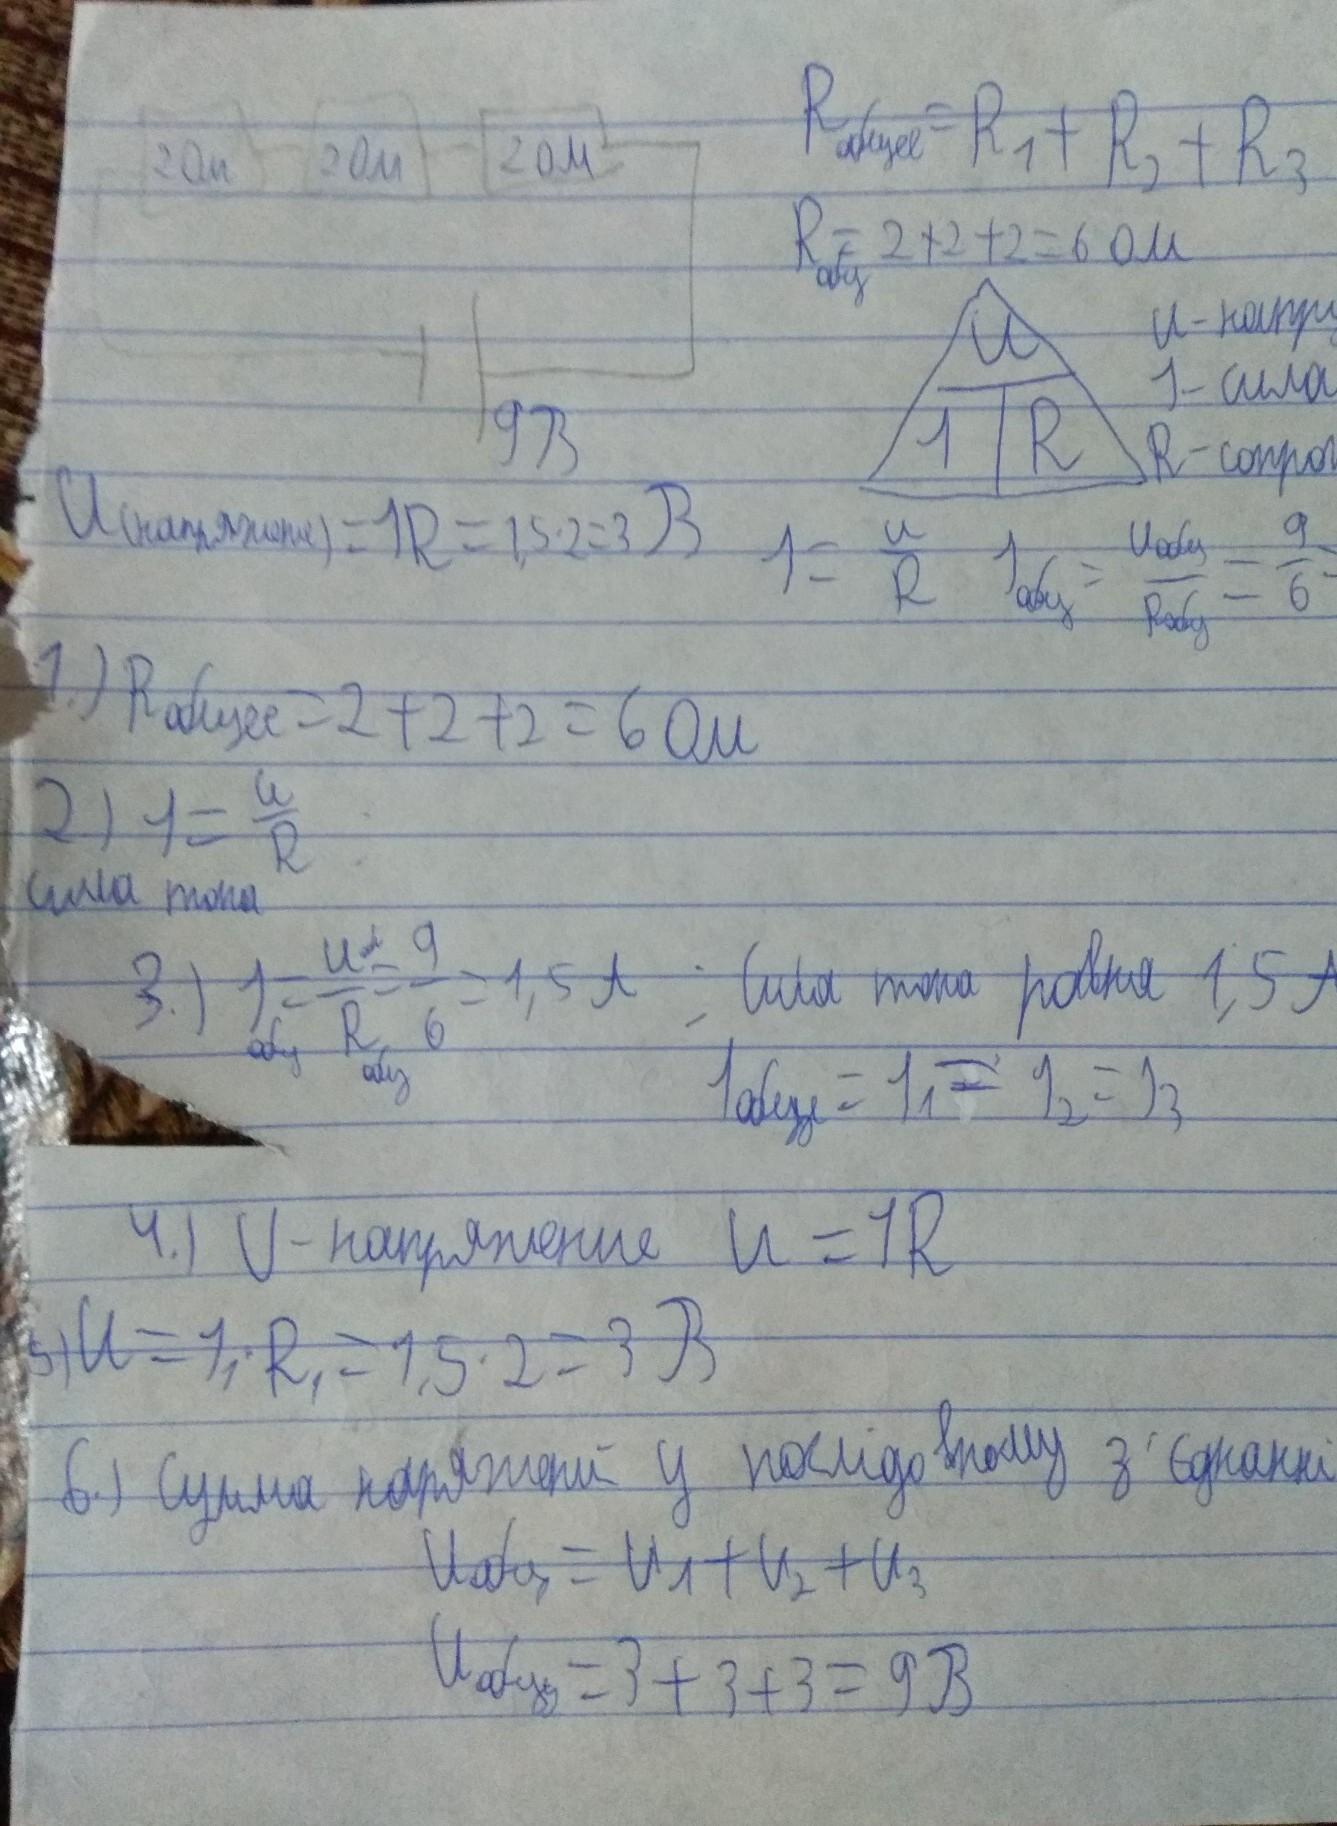 2 Ом 2 Ом 2 Ом
9В
Rобщее = R1 + R2 + R3
Rобщ = 2+2+2=6 Ом
U
I R
U - напр
I - сила
R - сопро
U(напряжение) = IR = 1,5·2=3 В
I = U/R Iобщ = Uобщ/Rобщ = 9/6 =
1.) Rобщее = 2+2+2 = 6 Ом
2) I = U/R
сила тока
3.) Iобщ = U/Rобщ = 9/6 = 1,5 А ; Сила тока равна 1,5 А
Iобщ = I1 = I2 = I3
4.) U - напряжение U = IR
5) U = I1 · R1 = 1,5 · 2 = 3 В
6.) Сумма напряжений у послідовному з'єднанні
Uобщ = U1 + U2 + U3
Uобщ = 3 + 3 + 3 = 9 В